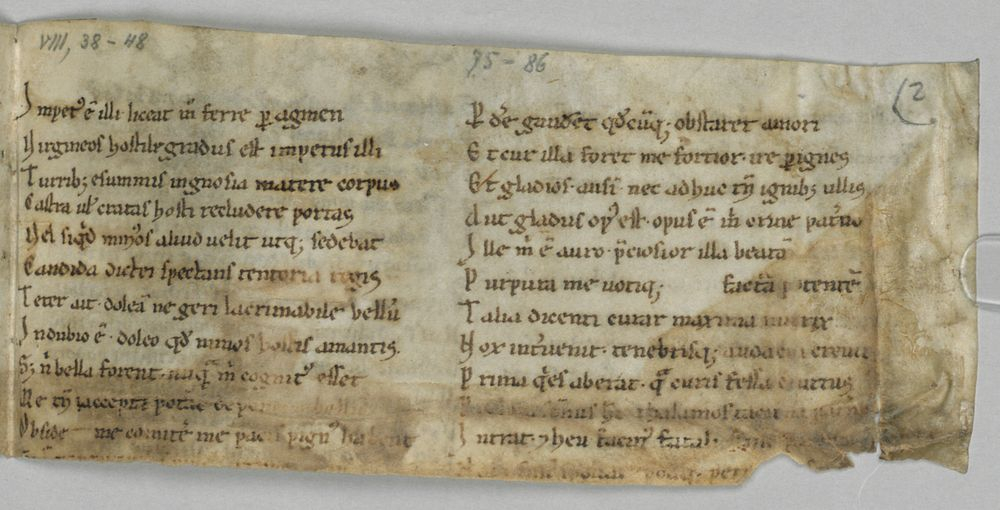 VIII, 38-48
Impet᷒ ē illi liceat m̄ ferre ꝑ agmen
Virgineos hostile gradus est impetus illi
Turrib; e summis in gnosia mittere corpus
Castra ul' eratas hosti recludere portas
Vel siqd minos aliud uelit utq; sedebat
Candida dictei spectans tentoria regis
Leter ait dolea ne geri lacrimabile bellū
In dubio ē doleo qd minos hostis amantis
S; n̄ bella forent nūq m̄ cognit᷒ esset
Me tn̄ accepta potat deponere bellū
Obside me comitē me pacis pign᷒
75-86
(2
Pdēe gaudet qdcūq; obstaret amori
Et cur illa foret me fortior ire ꝑ ignes
Et gladios ausī nec ad huc tn̄ ignib; ullis
Aut gladius op᷒ est opus ē m̄ crine pat̄no
Ille m̄ ē auro p̄ciosior illa beatā
Purpura me uotiq; factā potentē
Talia dicenti curar maxima nutrix
Nox int̄uenit tenebrisq; audacia creuit
Prima qes aberat qa curis fessa diurnis
thalamos taciturna
Intrat ⁊ heu facin᷒ fatal